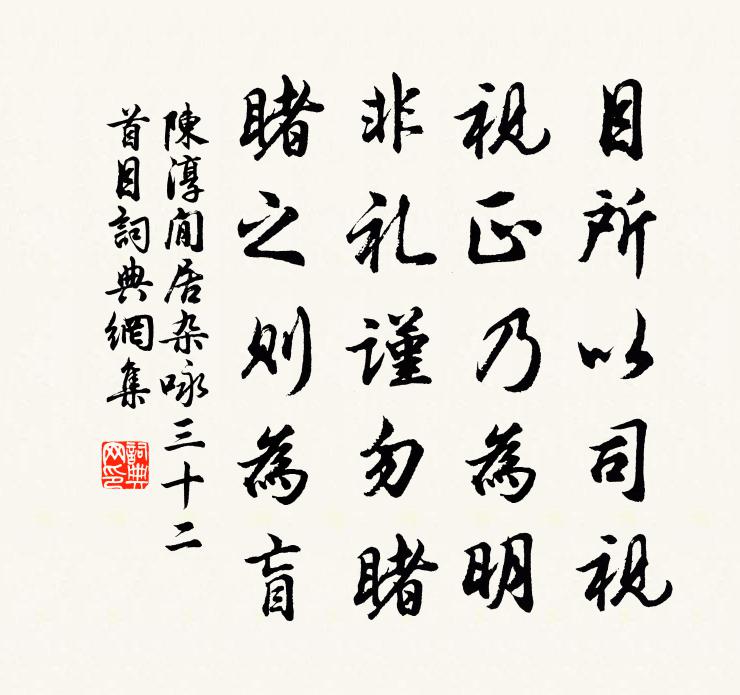 目所以司視
視正乃為明
非礼謹勿睹
睹之則為盲
陳淳閒居杂咏三十二
首目詞典網集
詞典
网印